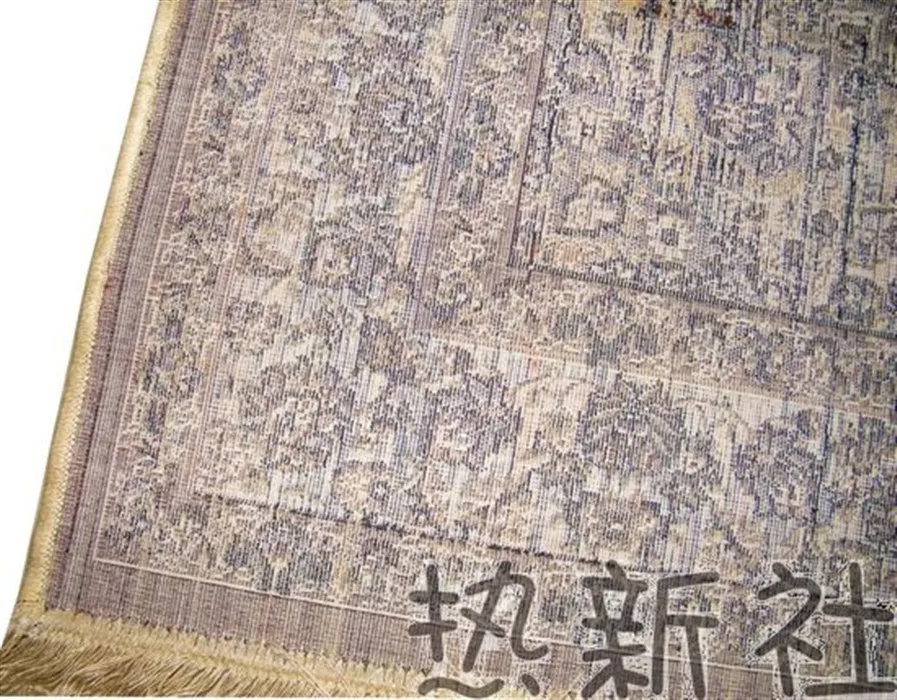 热新社